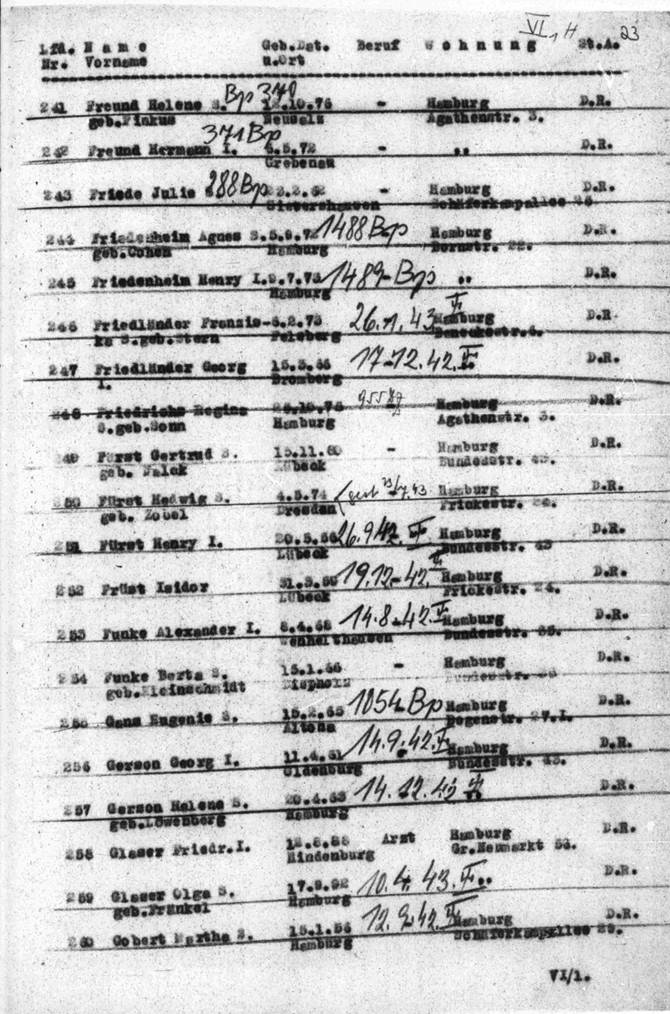 VI, H 23
Lfd. Name Geb.Dat. Beruf Wohnung St.A.
Nr. Vorname u.Ort
241 Freund Helene S. Bp 370 12.10.76 - Hamburg D.R.
geb.Pinkus Neusalz Agathenstr. 3.
371 Bp
242 Freund Hermann I. 6.5.72 - " D.R.
Grebenau
243 Friede Julie 288 Bp - Hamburg D.R.
Schäferkampallee
244 Friedenheim Agnes S. 1488 Bp Hamburg D.R.
geb.Cohen Hamburg Bornstr. 22.
245 Friedenheim Henry I. 9.7.73 1489 Bp " D.R.
Hamburg
246 Friedländer Franzis- 26.1.43 II Hamburg D.R.
ka S.geb.Stern Felsberg Beneckestr.
247 Friedländer Georg 17.12.42. II D.R.
I. Bromberg
248 Friedrichs Regina Hamburg D.R.
S.geb.Sonn Hamburg Agathenstr. 3.
249 Fürst Gertrud S. 15.11.80 - Hamburg D.R.
geb. Falck Lübeck Bundesstr. 43.
250 Fürst Hedwig S. 4.5.74 Hamburg D.R.
geb. Zobel Dresden Frickestr. 24.
251 Fürst Henry I. 26.9.42. II Hamburg D.R.
Lübeck Bundesstr. 43
252 Früst Isidor 19.12.42 II Hamburg D.R.
Lübeck Frickestr. 24.
253 Funke Alexander I. 8.4.68 14.8.42. II Hamburg D.R.
Bundesstr. 35.
254 Funke Berta S. 15.1.66 - Hamburg D.R.
geb.Kleinschmidt Diepholz Bundesstr.
255 Gans Eugenie S. 15.2.65 1054 Bp Hamburg D.R.
Altona 27.I.
256 Gerson Georg I. 11.4.51 14.9.42. II Hamburg D.R.
Oldenburg Bundesstr. 43.
257 Gerson Helene S. 20.4.63 14.12.42 II " D.R.
geb.Löwenberg Hamburg
258 Glaser Friedr.I. 12.8.88 Arzt Hamburg D.R.
Hindenburg Gr.Neumarkt 56.
259 Glaser Olga S. 17.9.92 10.4.43. II " D.R.
geb.Fränkel Hamburg
260 Gobert Martha S. 15.1.56 12.9.42. II Hamburg D.R.
Hamburg Schäferkampallee 29.
VI/1.